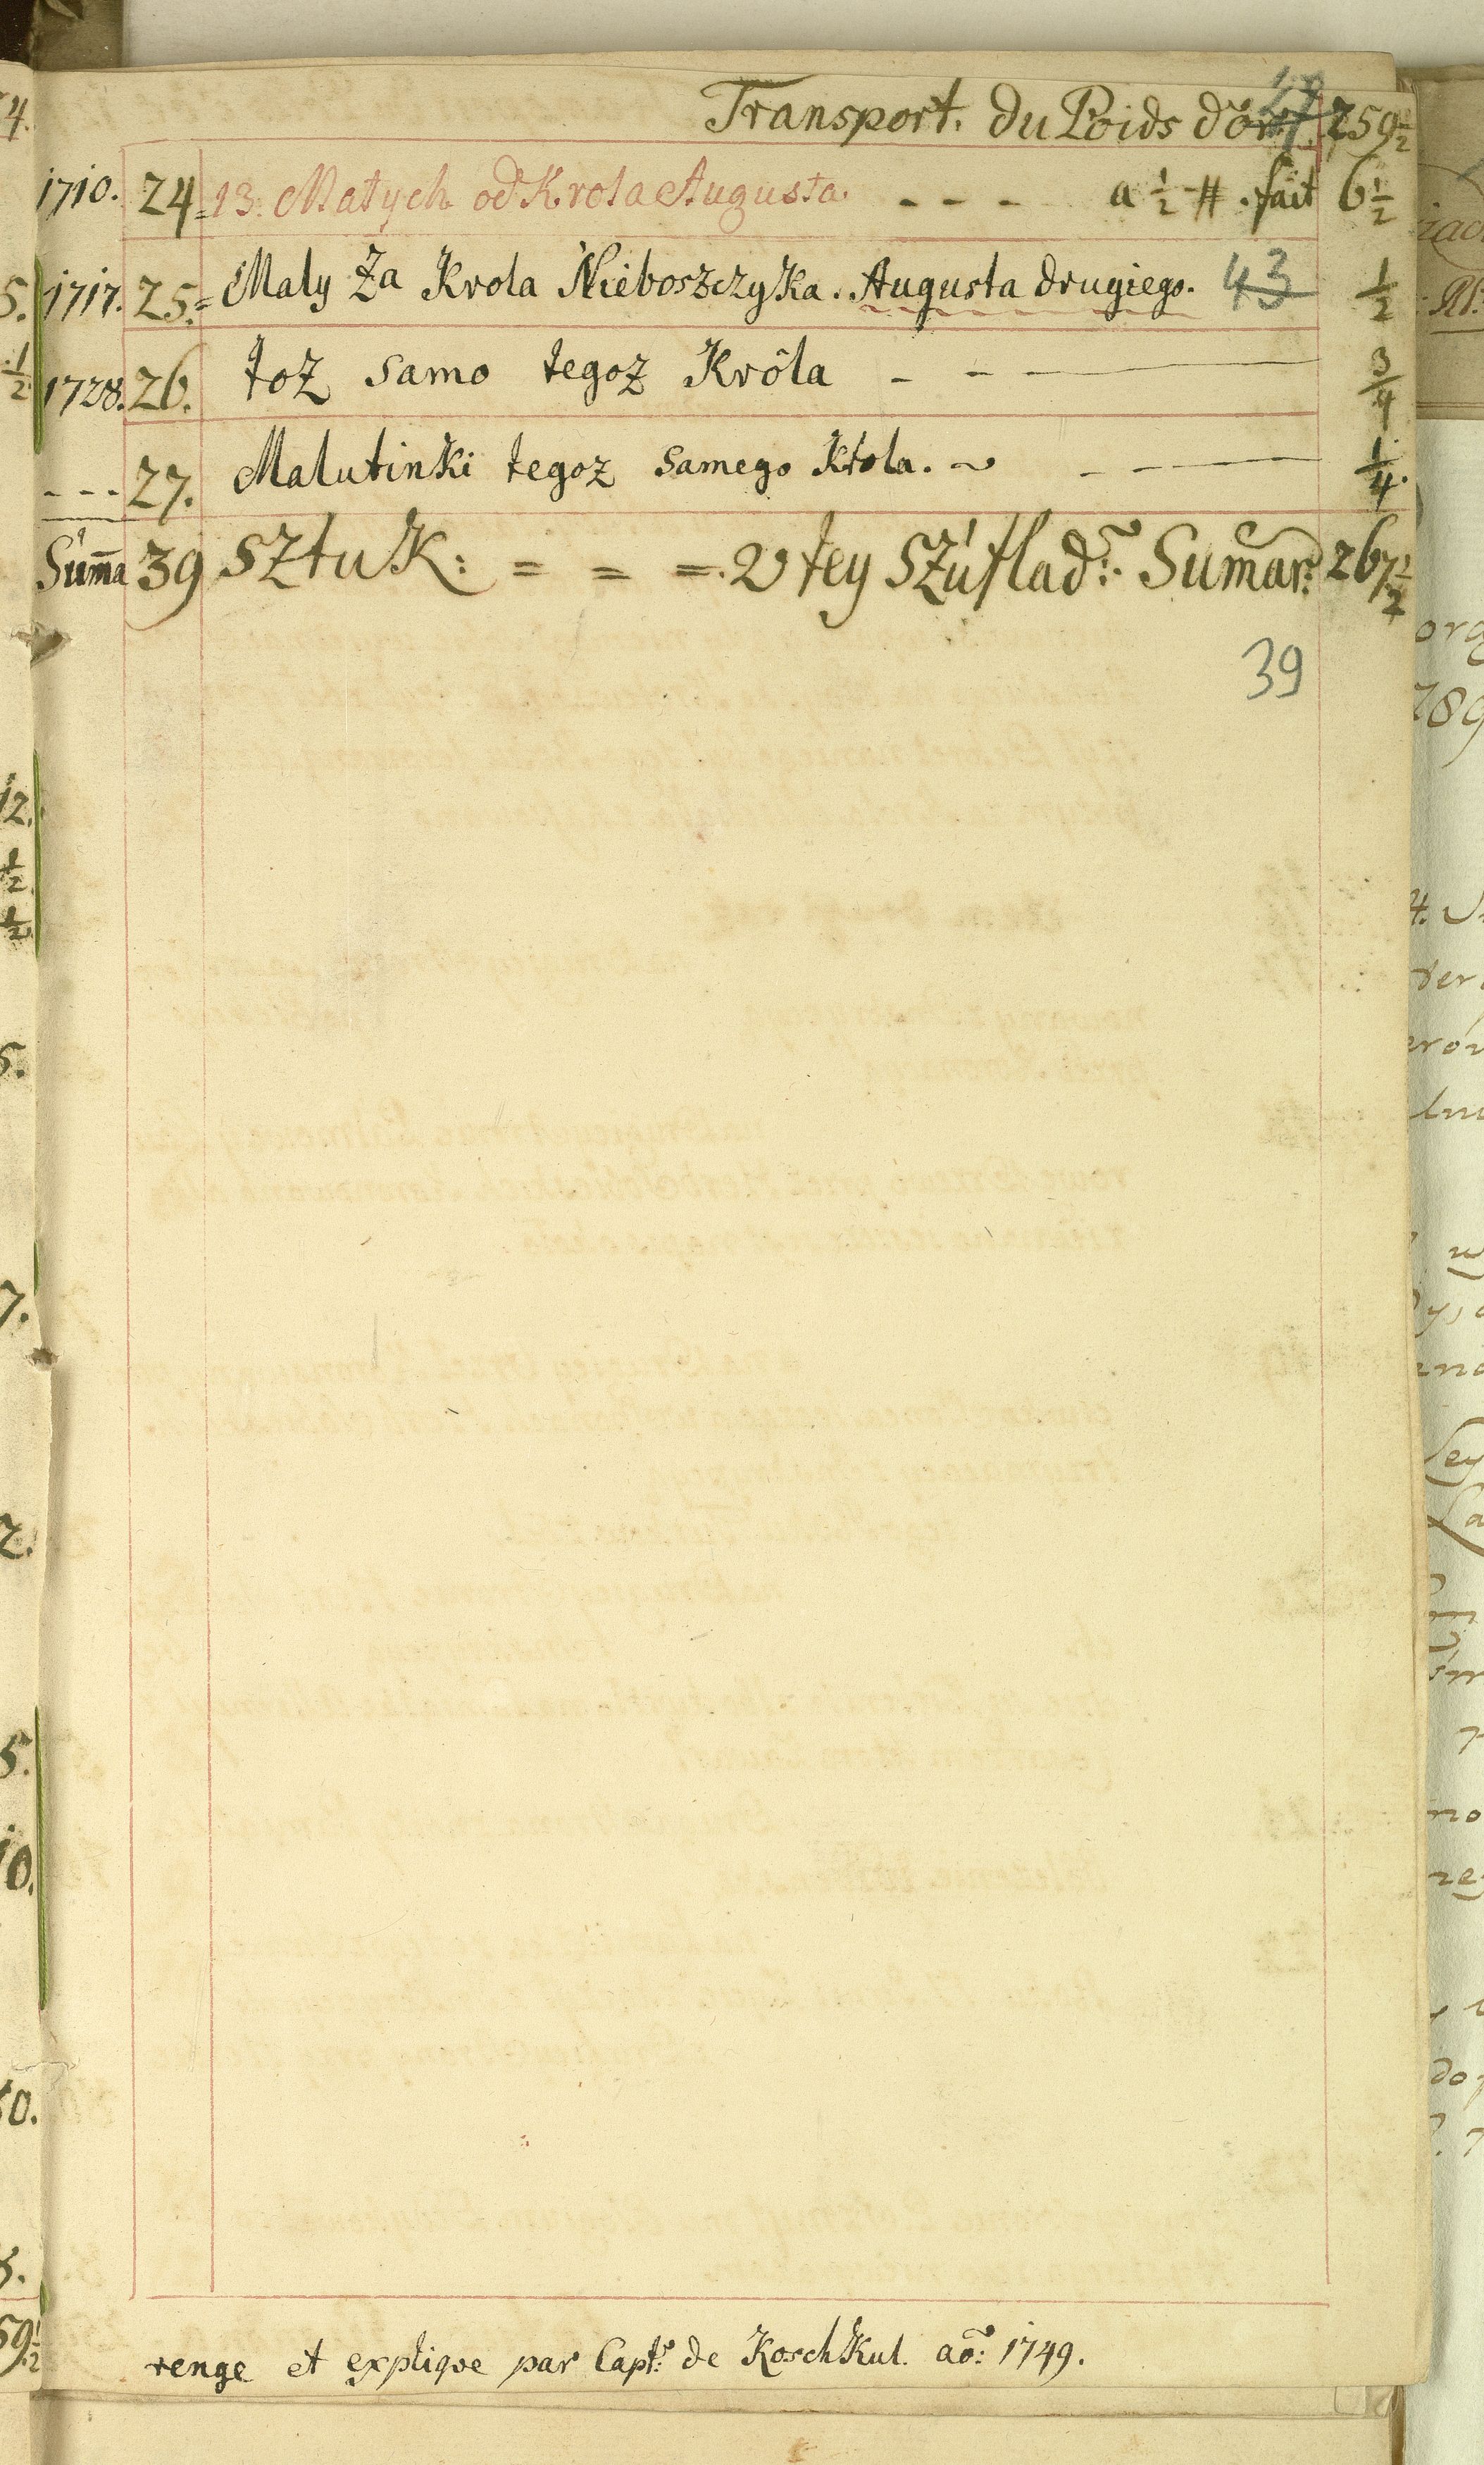 Transport. du Poids d'or 259½
1710. 24 = 13. Małych od Krola Augusta. - - - a ½ # . fait 6½
1717. 25. = Maly Za Krola Nieboszczyka. Augusta drugiego. 43 ½
1728. 26. toż samo tegoż Krôla - - — ¾
- - - 27. Malutinki tegoz samego Krola. ~ - - — ¼.
Sum̄a 39 Sztuk: = = =. w tey Szuflad: Sum̄ar: 267½
39
renge et explique par Capt: de KoschKul. aō: 1749.